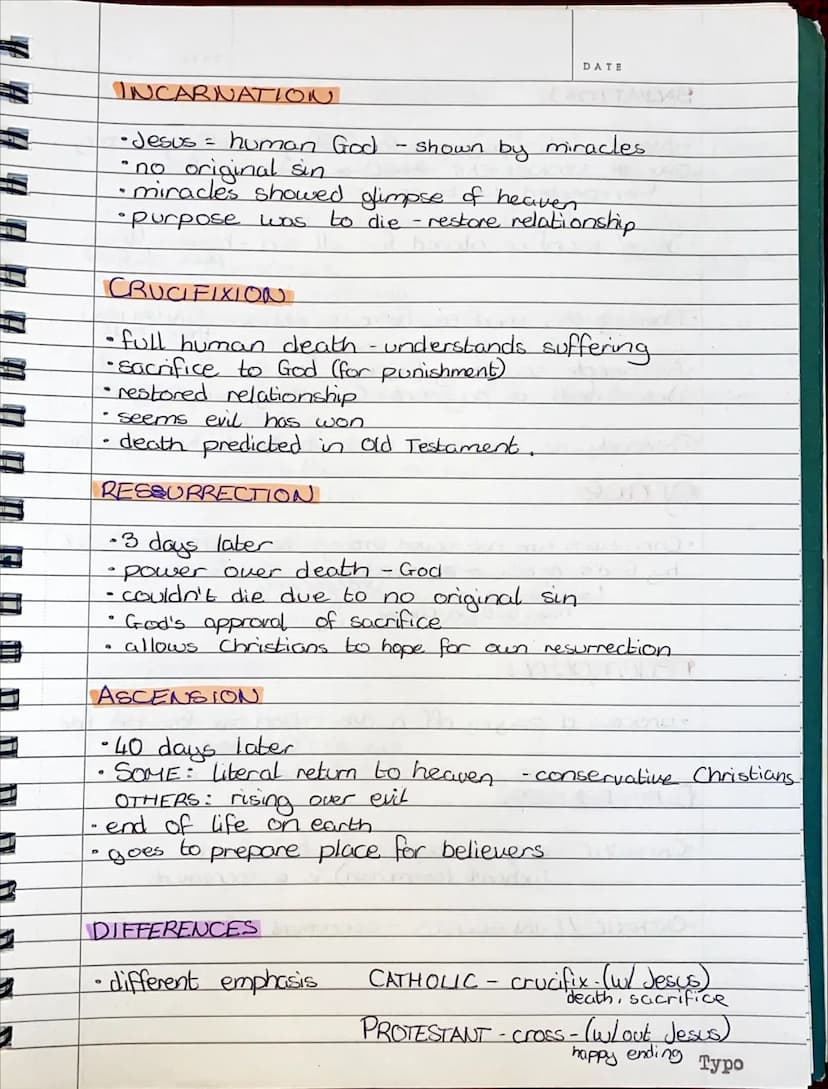 DATE
INCARNATION
• Jesus = human God - shown by miracles
• no original sin
• miracles showed glimpse of heaven
• purpose was to die - restore relationship
CRUCIFIXION
• full human death - understands suffering
• sacrifice to God (for punishment)
• restored relationship
• seems evil has won
• death predicted in Old Testament.
RESSURRECTION
• 3 days later
• power over death - God
• couldn't die due to no original sin
• God's approval of sacrifice
• allows Christians to hope for own resurrection
ASCENSION
• 40 days later
• SOME: literal return to heaven - conservative Christians
OTHERS: rising over evil
• end of life on earth
• goes to prepare place for believers
DIFFERENCES
• different emphasis CATHOLIC - crucifix - (w/ Jesus)
death, sacrifice
PROTESTANT - cross - (w/out Jesus)
happy ending
Typo